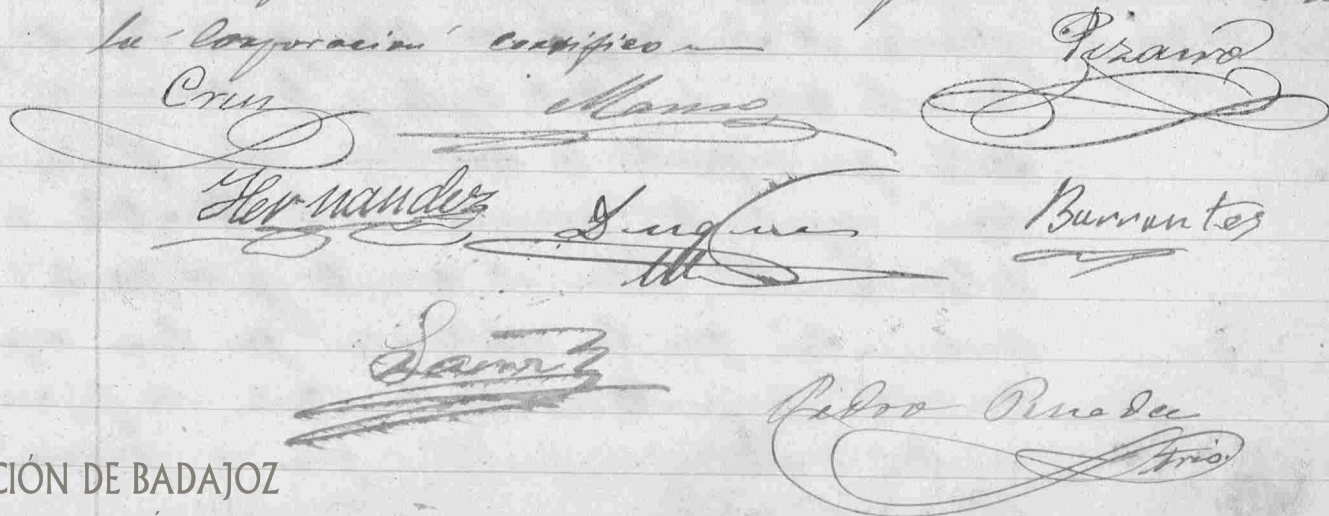 la Corporacion certifico
Cruz Manso Pizarro
Hernandez Duque Barrantes
Sainz
Pedro Rueda
Srio.
CIÓN DE BADAJOZ